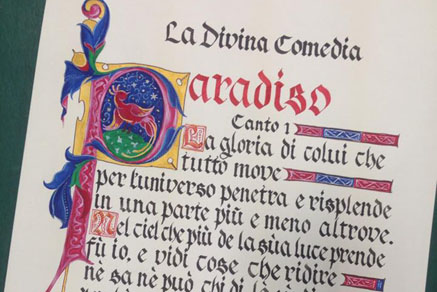 La Divina Comedia
Paradiso
Canto 1
La gloria di colui che
tutto move
per l'universo penetra e risplende
in una parte più e meno altrove.
Nel ciel che più de la sua luce prende
fù io, e vidi cose che ridire
nè sa nè può chi di